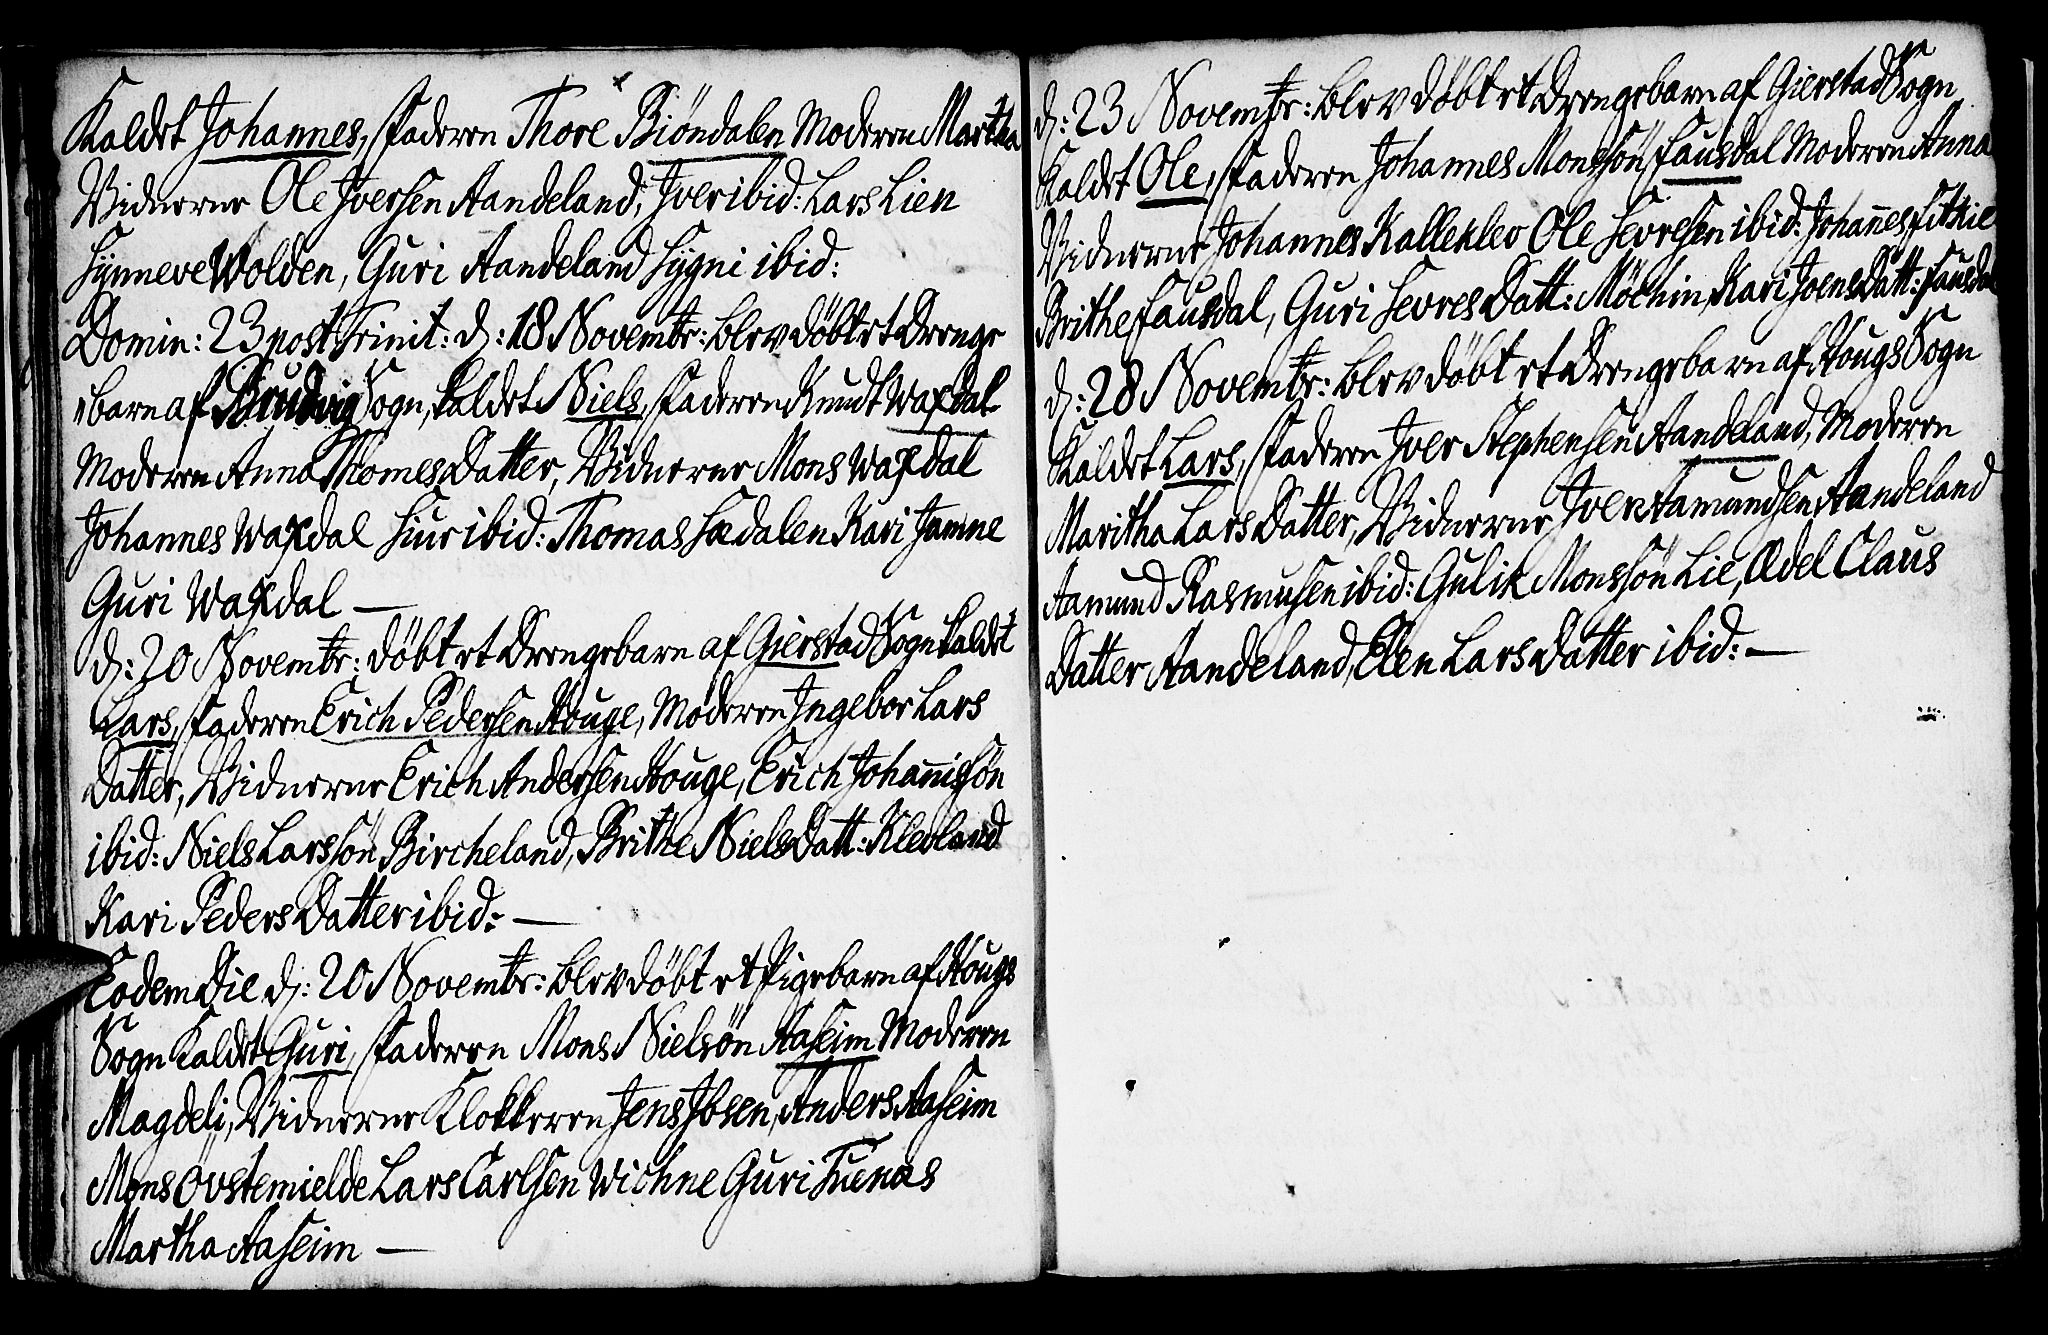 Kaldet Johannes, Faderen Thore Biöndalen Moderen Martha
Vidnerne Ole Iversen Aandeland, Iver ibid: Lars Lien
Synneve Wolden, Guri Aandeland Sygni ibid:
Domin: 23 post Trinit: d: 18 Novembr: blev döbt et Drenge
barn af Brudvig Sogn, kaldet Niels, Faderen Knudt Waxdal
Moderen Anna Thomes Datter, Vidnerne Mons Waxdal
Johannes Waxdal Siur ibid: Thomas Hædalen Kari Jamne
Guri Waxdal —
d: 20 Novembr: döbt et Drengebarn af Gierstad Sogn kaldet
Lars, Faderen Erich Pedersen Houge, Moderen Ingebor Lars
Datter, Vidnerne Erich Andersen Houge, Erich Johannissön
ibid: Niels Larssön Bircheland, Brithe Niels Datt: Klevland
Kari Peders Datter ibid: —
Eodem Die d: 20 Novembr: blev döbt et Pigebarn af Hougs
Sogn Kaldet Guri, Faderen Mons Nielsön Aaseim Moderen
Magdeli, Vidnerne Klokkeren Jens Ibsen, Anders Aaseim
Mons Övstemielde Lars Carlsen Wichne Guri Tuenæs
Martha Aaseim —
d: 23 Novembr: blev döbt et Drengebarn af Gierstad Sogn
Kaldet Ole, Faderen Johannes Monssön Fausdal Moderen Anna
Vidnerne Johannes Kalleklev Ole Sevresen ibid: Johannes
Brithe Fausdal, Guri Sevres Datt: Möchin, Kari Joens Datt: Fausdal
d: 28 Novembr: blev döbt et Drengebarn af Hougs Sogn
Kaldet Lars, Faderen Iver Stephensen Aandeland, Moderen
Maritha Lars Datter, Vidnerne Iver Aamundsen Aandeland
Aamund Rasmusen ibid: Gulik Monssön Lie, Ædel Claus
Datter Aandeland, Elen Lars Datter ibid: —